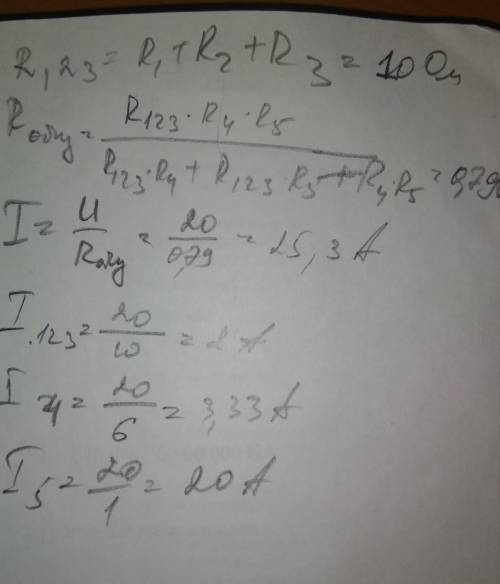 R₁₂₃ = R₁ + R₂ + R₃ = 10 Ом
Rобщ = (R₁₂₃ · R₄ · R₅) / (R₁₂₃ · R₄ + R₁₂₃ · R₅ + R₄ · R₅) = 0,79
I = U / Rобщ = 20 / 0,79 = 25,3 A
I₁₂₃ = 20 / 10 = 2 A
I₄ = 20 / 6 = 3,33 A
I₅ = 20 / 1 = 20 A